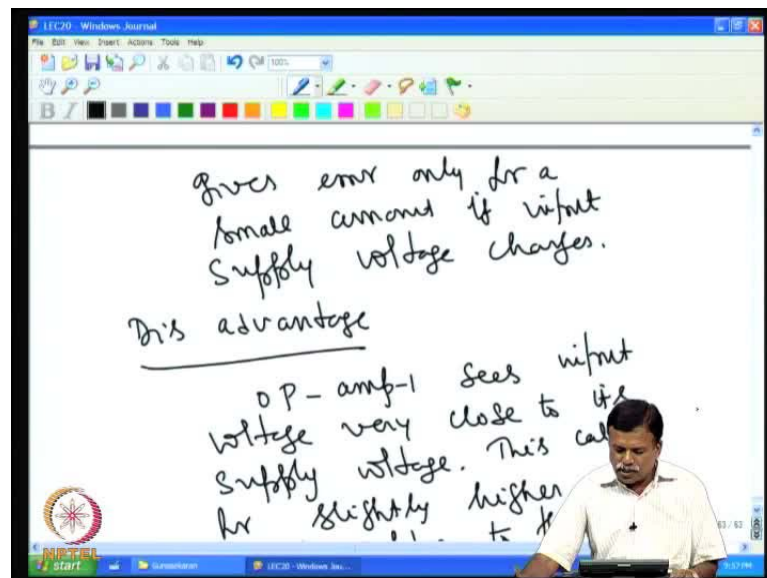 LEC20 - Windows Journal
File Edit View Insert Actions Tools Help
100%
B I
gives error only for a
small amount if input
supply voltage changes.
Dis advantage
OP-amp-1 sees input
voltage very close to its
supply voltage. This
for slightly higher
to
63 / 63
NPTEL
start
Gunasekaran
LEC20 - Windows Jou...
9:57 PM